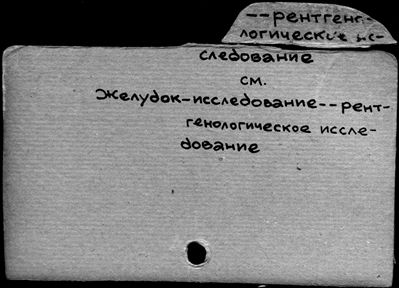 --рентгено-
логическое ис-
следование
см.
Желудок-исследование--рент-
генологическое иссле-
дование